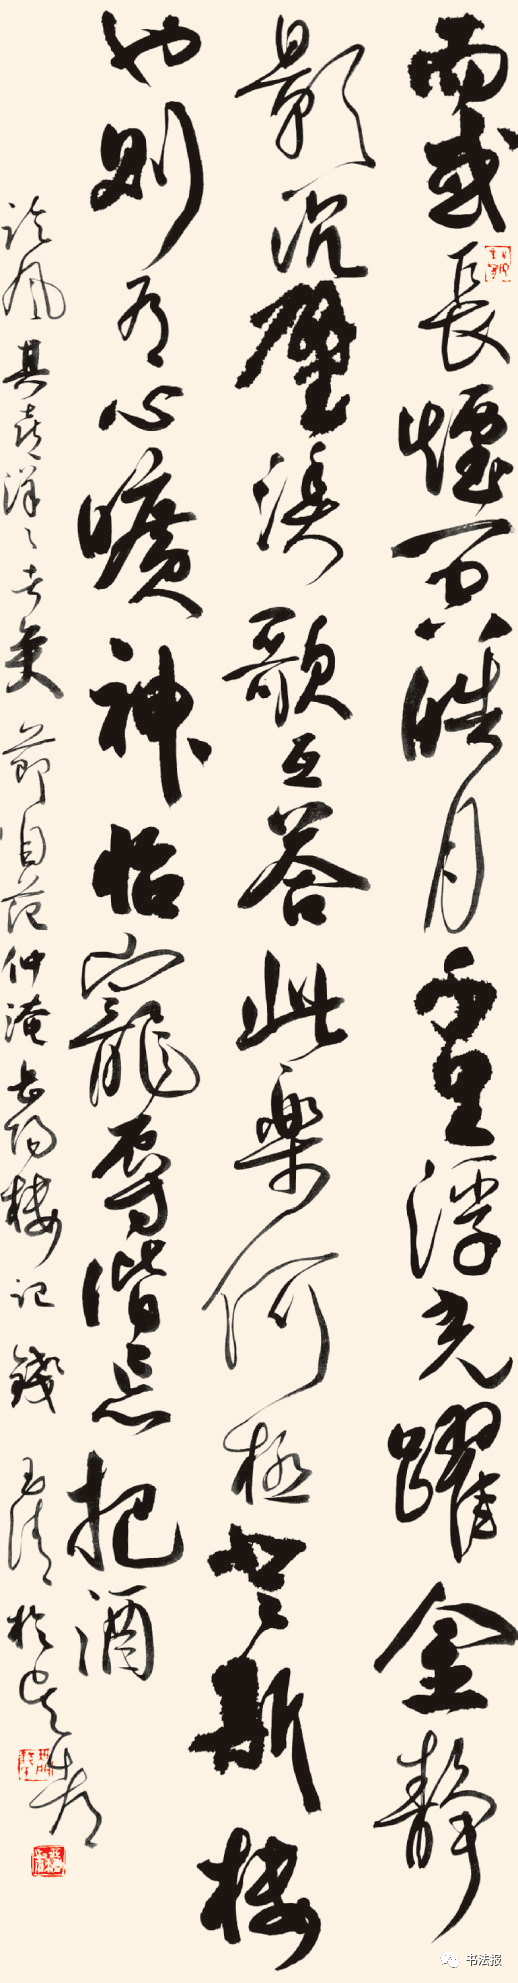 而或長煙一空皓月千里浮光躍金靜
影沉璧漁歌互答此樂何極登斯樓
也則有心曠神怡寵辱偕忘把酒
臨風其喜洋〻者矣 節自范仲淹岳陽樓記 錢玉清於
书法报